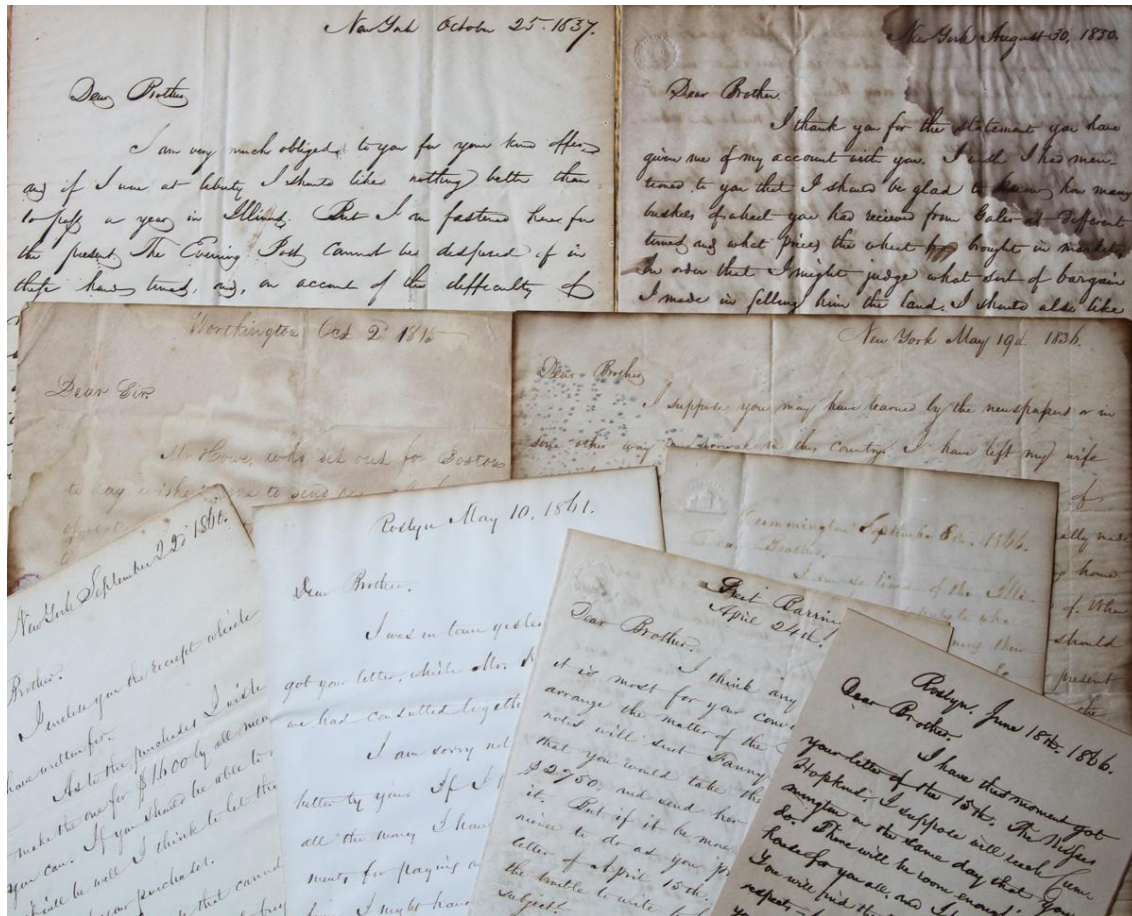 New York October 25. 1837.
Dear Brother
I am very much obliged to you for your kind offer,
and if I were at liberty I should like nothing better than
to pass a year in Illinois. But I am fastened here for
the present. The Evening Post cannot be disposed of in
these hard times, and, on account of the difficulty of
New York August 30, 1850.
Dear Brother.
I thank you for the statement you have
given me of my account with you. I wish I had men-
tioned to you that I should be glad to know how many
bushels of wheat you had recieved from Galer at different
times and what prices the wheat brought in market,
in order that I might judge what sort of bargain
I made in selling him the land. I should also like
Worthington Oct 2d
Dear Sir
Mr Howe, who set out for Boston
to day wishes me to send
New York May 19th 1836.
Dear Brother
I suppose you may have learned by the newspapers or in
some other way in this country. I have left my wife
of
ally made
home
of when
should
present
the
New York September 22d
Brother.
I enclose you the receipt which
have written for.
As to the purchases I wish
make the one for $1600 by all mean
you can. If you should be able to
will be well I think to let the
your purchases.
that cannot
Roslyn May 10, 1861.
Dear Brother.
I was in town yeste
got your letter, which Mr.
we had consulted togethe
I am sorry not
better by you. If I
all the money I have
ments for paying
I might have
Cummington September 8th. 1866.
Dear Brother.
I am so tired of the Illi-
Great Barrin
April 24th
Dear Brother.
I think any
it is most for your conv
arrange the matter of the
notes will suit Fanny
that you would take the
$2750, and send her
it. But if it be more
nient to do as you
letter of April 15th.
the trouble to write
subject.
Roslyn. June 18th. 1866.
Dear Brother.
I have this moment got
your letter of the 15th. The Misses
Hopkins, I suppose will reach Cum-
mington on the same day that you
do. There will be room enough
house for you all, and
You will find the
respects